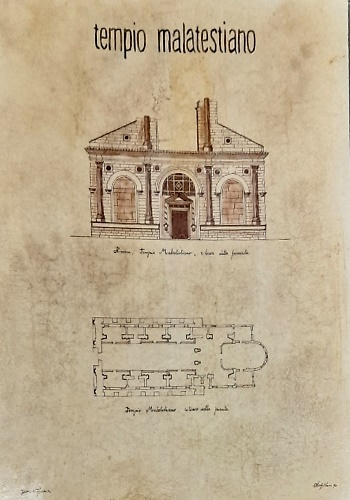 tempio malatestiano
Rimini, Tempio Malatestiano, rilievo della facciata
Tempio Malatestiano rilievo della pianta